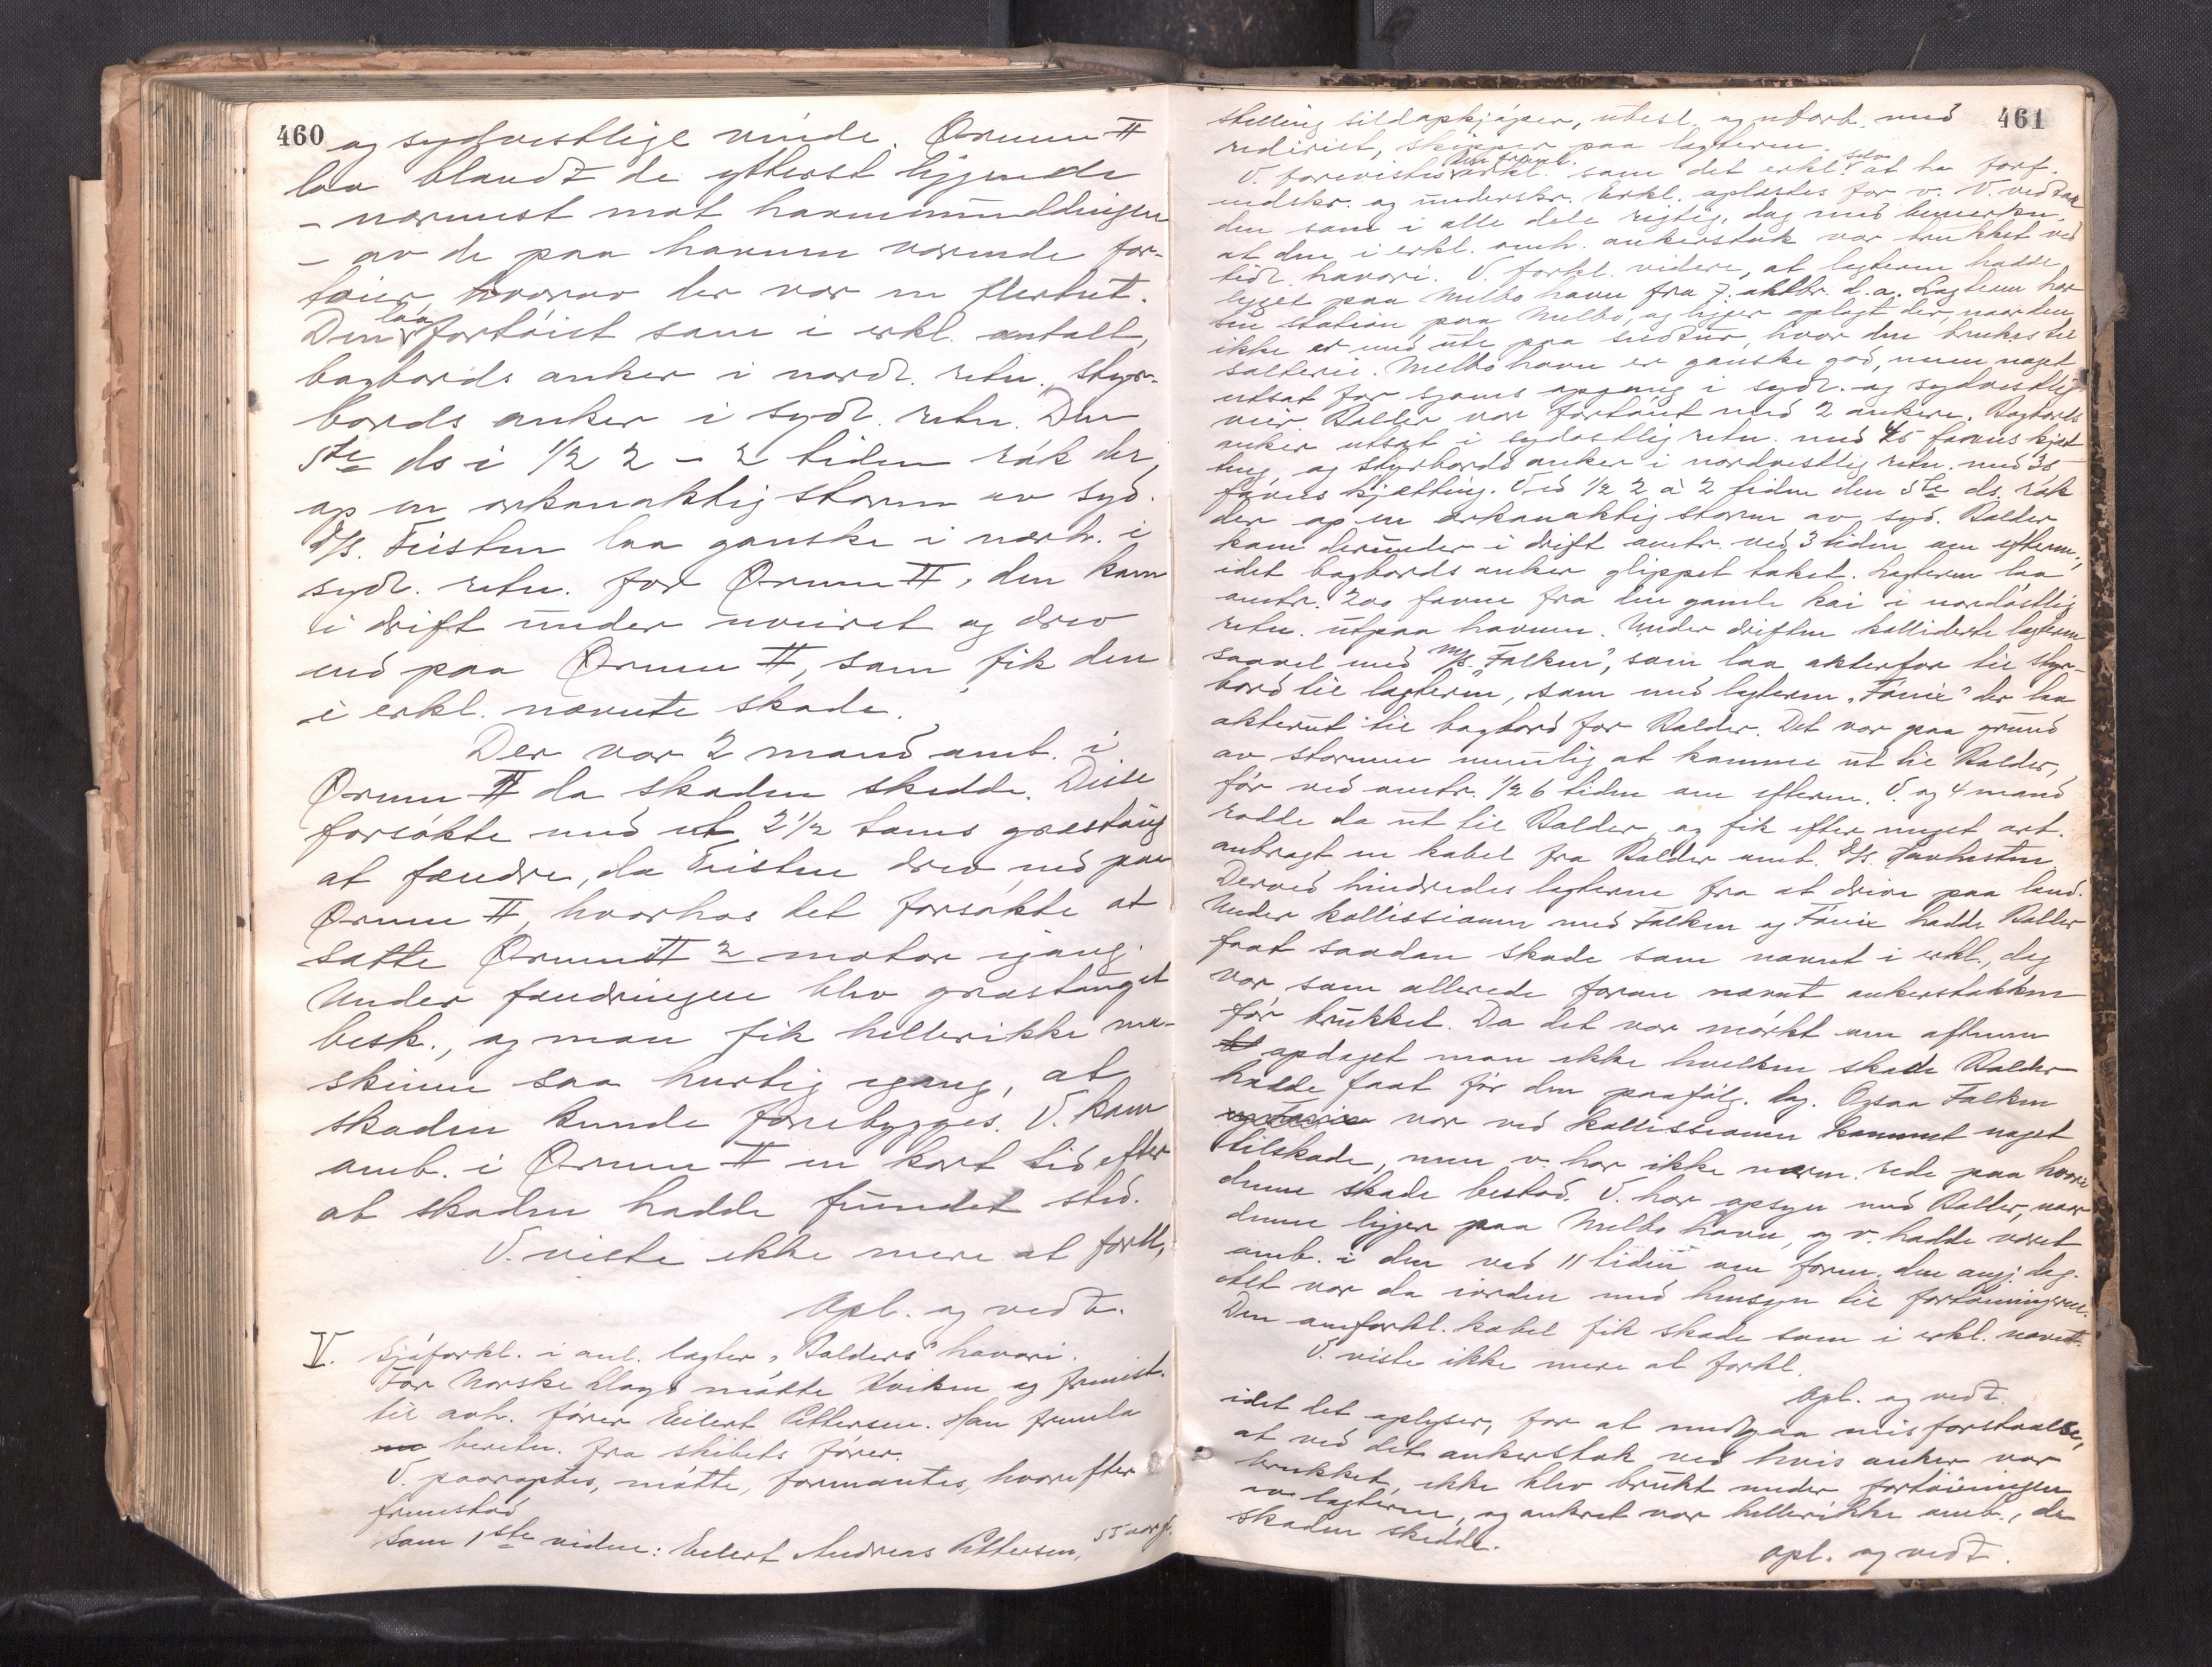 460
og sydvestlige vinde. Ormen II
laa blandt de ytterst liggende
- nærmest mot havnemunddingen
- av de paa havnen værende far-
tøier, hvorav der var en flerhet.
Den laa fortøiet som i erkl. antalt,
bagbords anker i nordl. retn. styr-
bords anker i sydl. retn. Den
5te ds i 1/2 2 - 2 tiden røk der
op en orkanaktig storm av syd.
D/S. Feisten laa ganske i nærh. i
sydl. retn. for Ormen II, den kom
i drift under uveiret og drev
ned paa Ormen II, som fik den
i erkl. nævnte skade.
Der var 2 mand omb. i
Ormen II da skaden skedde. Disse
forsøkte med et 2 1/2 toms græstaug
at fændre, da Feisten drev ned paa
Ormen II, hvorhos det forsøkte at
sætte Ormen II's motor igang.
Under fændringen blev græstauget
besk., og man fik hellerikke ma-
skinen saa hurtig igang, at
skaden kunde forebygges. V. kom
omb. i Ormen II en kort tid efter
at skaden hadde fundet sted.
V. viste ikke mere at forkl.
Opl. og vedt.
V. Sjøforkl. i anl. lægter "Balders" havari.
For Norske Lloyd møtte Kviken og fremst.
til avh. fører Eilert Pettersen. Han fremla
beretn. fra skibets fører.
V. paaroptes, møtte, formantes, hvorefter
fremstod
Som 1ste vidne: Eilert Andreas Pettersen, 55 aar gl.
461
stilling sildopkjøper, ubesl. og uforb. med
rederiet, skipper paa lægteren.
V. forevistes den freml. erkl. som det erkl. selv at ha forf.
nedskr. og underskr. Erkl. oplæstes for v. V. vedtok
den som i alle dele rigtig, dog med bemerkn.
at den i erkl. omh. ankerstok var brukket ved
tidl. havari. V. forkl. videre, at lægteren hadde
ligget paa Melbo havn fra 7. oktbr. d.a. Lægteren har
sin station paa Melbo, og ligger oplagt der, naar den
ikke er med ute paa sildtur, hvor den brukes til
salteri. Melbo havn er ganske god, men noget
utsat for sjøens opgang i sydl. og sydvestlig
veir. Balder var fortøiet med 2 ankere. Bagbords
anker utsat i sydostlig retn. med 45 favns kjæt
ting, og styrbords anker i nordvestlig retn. med 35
favns kjætting. Ved 1/2 2 à 2 tiden den 5te ds. røk
der op en orkanaktig storm av syd. Balder
kom derunder i drift omtr. ved 3 tiden om efterm.,
idet bagbords anker glippet taket. Lægteren laa
omtr. 200 favne fra den gamle kai i nordøstlig
retn. utpaa havnen. Under driften kolliderte lægteren
saavel med M/S. "Falken", som laa aktenfor til styr-
bord til lægteren, som med lægteren "Fønix" der laa
akterut til bagbord for Balder. Det var paa grund
av stormen umulig at komme ut til Balder,
før ved omtr. 1/2 6 tiden om efterm. V. og 4 mand
rodde da ut til Balder, og fik efter meget arb.
anbragt en kabel fra Balder omb. D/S. Havhesten.
Derved hindredes lægteren fra at drive paa land.
Under kollissionen med Falken og Fønix hadde Balder
faat saadan skade som nævnt i erkl., dog
var som allerede foran nævnt ankerstokken
før brukket. Da det var mørkt om aftenen
opdaget man ikke hvilken skade Balder
hadde faat før den paafølg. dag. Ogsaa Falken
og Fønix var ved kollissionen kommet noget
tilskade, men v. har ikke nærm. rede paa hvori
denne skade bestod. V. har opsyn med Balder, naar
denne ligger paa Melbo havn, og v. hadde været
omb. i den ved 11 tiden om form. den ang. dag.
Alt var da iorden med hensyn til fortøiningerne.
Den omforkl. kabel fik skade som i erkl. nævnt.
V. viste ikke mere at forkl.
Opl. og vedt.
idet det oplyser, for at undgaa misforstaaelse,
at ved det ankerstok ved hvis anker var
brukket, ikke blev brukt under fortøiningen
av lægteren, og ankret var hellerikke omb., da
skaden skedde.
Opl. og vedt.